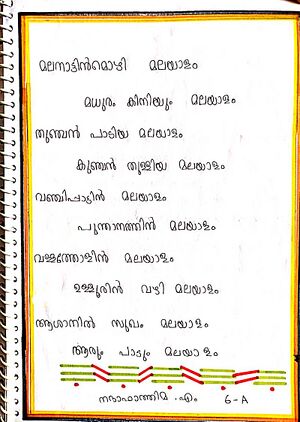 മലനാട്ടിൻമൊഴി മലയാളം
മധുരം കിനിയും മലയാളം
തുഞ്ചൻ പാടിയ മലയാളം
കുഞ്ചൻ തുള്ളിയ മലയാളം
വഞ്ചിപ്പാട്ടിൻ മലയാളം
പൂന്താനത്തിൻ മലയാളം
വള്ളത്തോളിൻ മലയാളം
ഉള്ളൂരിൻ വഴി മലയാളം
ആശാനിൽ സുഖം മലയാളം
ആരും പാടും മലയാളം
നദാഫാത്തിമ .എം 6-A